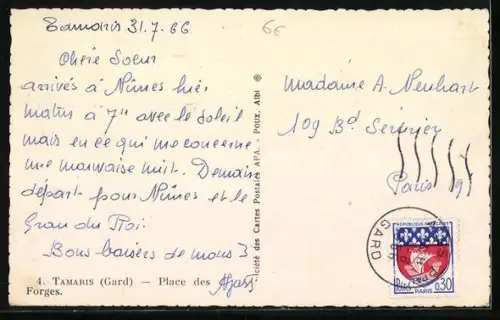 Tamaris 31.7.66
6€
Chère Soeur
arrivés à Nîmes hier
matin à 7h avec le soleil
mais en ce qui me concerne
une mauvaise nuit. Demain
départ pour Nîmes et le
Grau du Roi.
Bons baisers de nous 3
4. TAMARIS (Gard) — Place des
Forges.
Société des Cartes Postales APA. - POUX, Albi ®
Madame A. Neuhart
109 Bd Sérurier
Paris 19
GARD
REPUBLIQUE FRANÇAISE
POSTES
0,30
PARIS